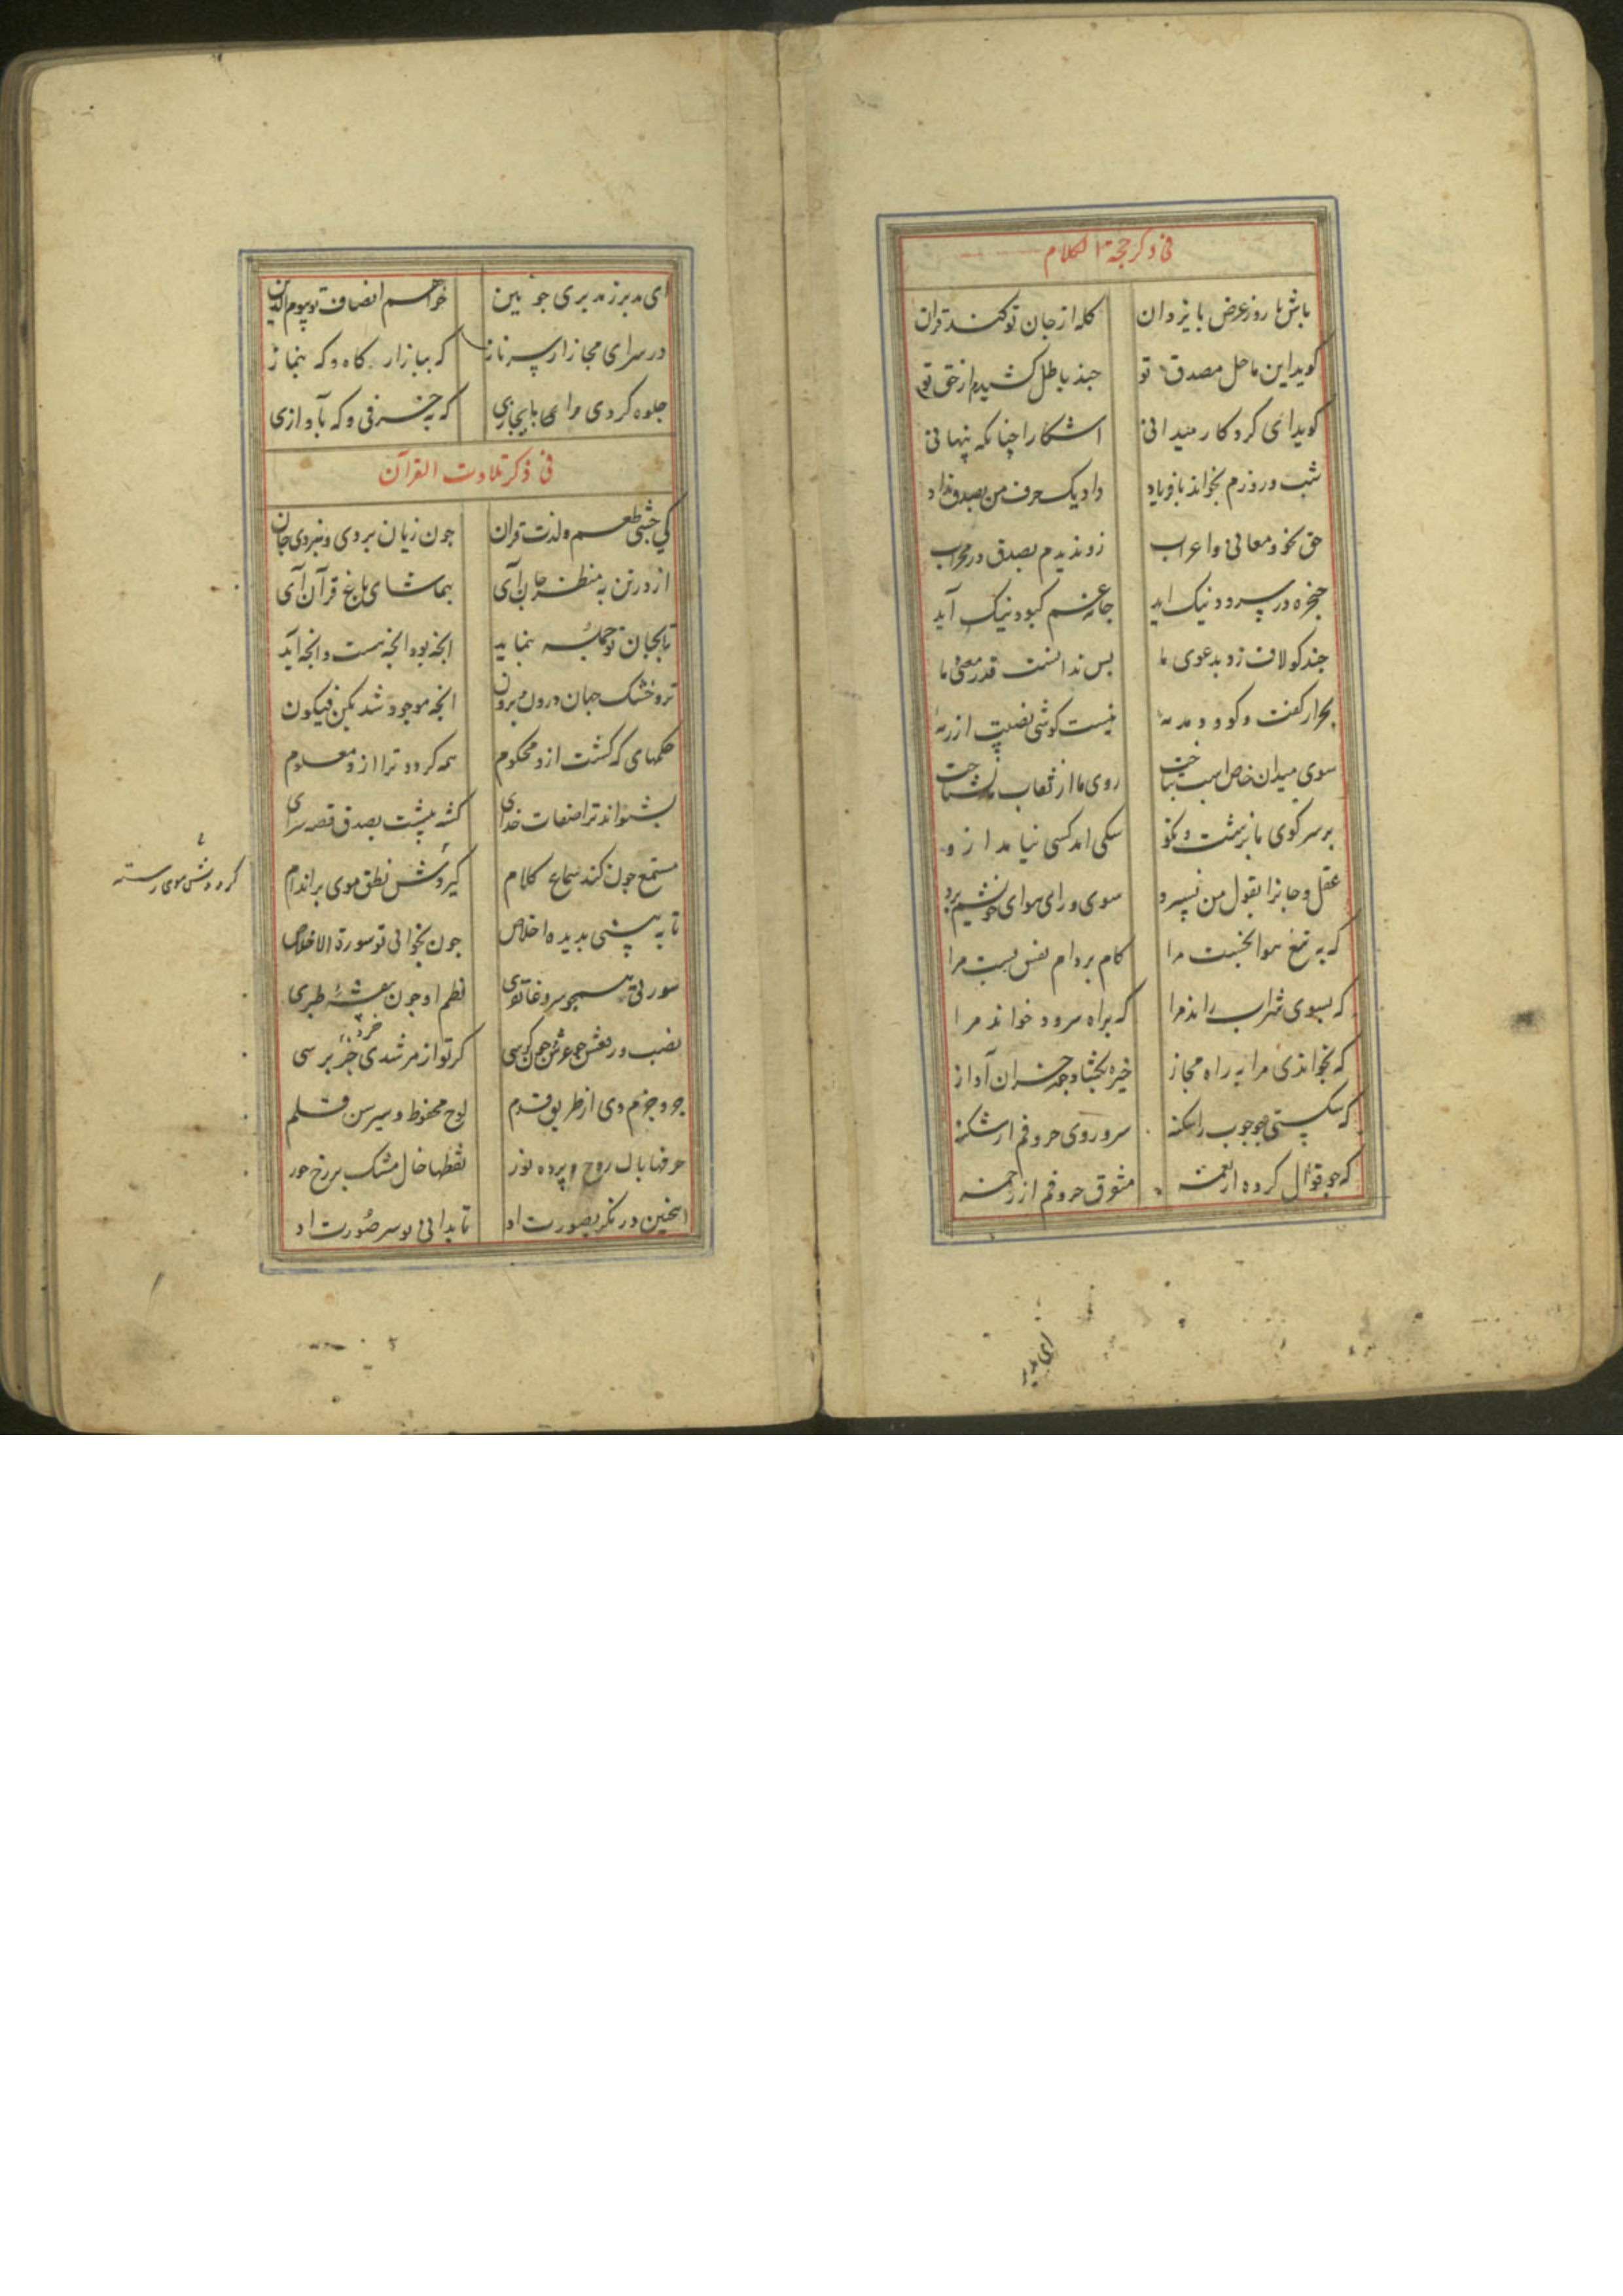 فی ذکر حجة الکلام
باش تا روز عرض با یزدان کله از جان تو کند قران
کوید این ماحل مصدق تو جند باطل کشیدم از حق تو
کوید ای کردکار میدانی اشکارا چنانکه پنهانی
شب و روزم بخواند با فریاد داد یک حرف من بصدق نداد
حق نحو و معانی و اعراب زو ندیدم بصدق در محراب
حنجره در سرود نیک اید جامه غم کبود نیک آید
جند کو لاف زد بدعوی ما بس ندانست قدر معنی ما
نیست کوشی نصیب از
سوی میدان خاص اسب بتاخت روی ما از نقاب نشناخت
بر سر کوی ما ز زشت و نکو سکی امد کسی نیامد ازو
عقل و جانرا بقول من نسپرد سوی ورای هوای خویشم برد
که به تیغ هوا بخست مرا کام بر دام نفس بست مرا
که بسوی شراب راند مرا که براه سرود خواند مرا
که بخواندی مرا به راه مجاز خیره بکشاد جون خران آواز
سر و روی حروفم از شکنه
که جو قوال کرده از نغمه حروفم از زخمه
ای مدبر
ای مدبر ز مدبری جو بین خواهم انصاف تو بیوم الدین
در سرای مجاز از سر ناز که ببازار کاه و که بنماز
جلوه کردی مرا که بحرفی و که بآوازی
فی ذکر تلاوت القرآن
کی جشی طعم و لذت قران جون زبان بردی و نبردی جان
از در تن به منظر جان آی بتماشای باغ قرآن آی
تا بجان تو جمله بنماید انجه بود انجه هست و انجه آید
تر و خشک جهان درون و برون انجه موجود شد بکن فیکون
حکمهای که کشت ازو محکوم همه کردد ترا ازو معلوم
بشنواند ترا صفات خدای کشته پیشت بصدق قصه سرای
مستمع جون کند سماع کلام کیردش نطق موی بر اندام
کرددش موی رسته
تا به بینی بدیده اخلاص جون بخوانی تو سورة الاخلاص
نظم او جون بنفشه طبری
نصب و رفعش جو عرش جون کرسی کر تو از مرشدی خبر برسی
خرد
جر و جزم وی از طریق قدم لوح محفوظ و سر سن قلم
حرفها بال روح و پرده نور نقطها خال مشک بر رخ حور
اینجنین در نکر بصورت او تا بدانی تو سر صورت او